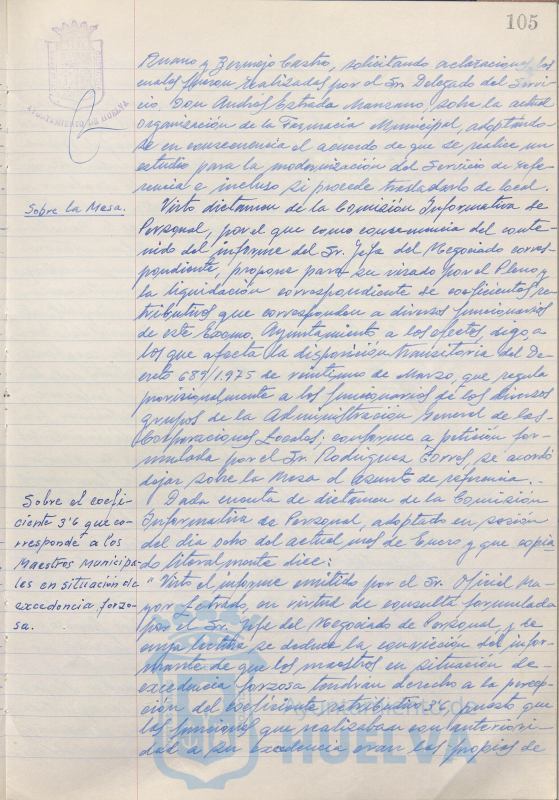 105
AYUNTAMIENTO DE HUELVA
y Bermejo Castro, solicitando aclaraciones, las
cuales fueron realizadas por el Sr. Delegado del Servi-
cio, Don Andrés Estrada Manzano, sobre la actual
organización de la Farmacia Municipal, adoptando-
se en consecuencia el acuerdo de que se realice un
estudio para la modernización del Servicio de refe-
rencia e incluso si procede trasladarlo de local.
Sobre la Mesa.
Visto dictamen de la Comisión Informativa de
Personal, por el que como consecuencia del conte-
nido del informe del Sr. Jefe del Negociado corres-
pondiente, propone para su visado por el Pleno
la liquidación correspondiente de coeficientes re-
tributivos que corresponden a diversos funcionarios
de este Excmo. Ayuntamiento a los efectos, digo, a
los que afecta la disposición transitoria del De-
creto 689/1.975 de veintiuno de Marzo, que regula
provisionalmente a los funcionarios de los diversos
grupos de la Administración General de las
Corporaciones Locales; conforme a petición for-
mulada por el Sr. Rodríguez Torres, se acordó
dejar sobre la Mesa el asunto de referencia.-
Sobre el coefi-
ciente 3'6 que co-
rresponde a los
Maestros Municipa-
les en situación de
excedencia forzo-
sa.
Dada cuenta de dictamen de la Comisión
Informativa de Personal, adoptado en sesión
del día ocho del actual mes de Enero y que copia-
do literalmente dice:
"Visto el informe emitido por el Sr. Oficial Ma-
yor Letrado, en virtud de consulta formulada
por el Sr. Jefe del Negociado de Personal y de
cuya lectura se deduce la convicción del infor-
mante de que los maestros en situación de
excedencia forzosa tendrían derecho a la percep-
ción del coeficiente retributivo 3'6, puesto que
las funciones que realizaban con anteriori-
dad a su excedencia eran las propias de
Ayuntamiento de
HUELVA